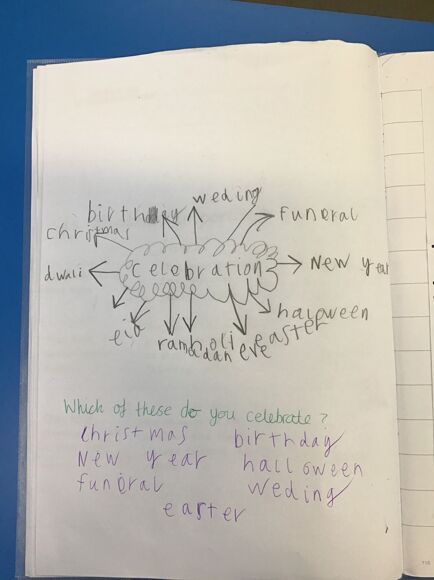 weding
birthday
funeral
christmas
celebration
New year
dwali
haloween
eid
holi
easter
ramadan
eve
Which of these do you celebrate?
christmas birthday
New year halloween
funeral weding
easter